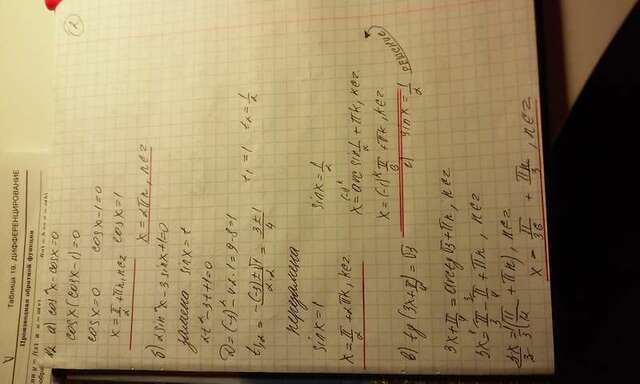 Таблица 19. ДИФФЕРЕНЦИРОВАНИЕ
Производная обратной функции
№2 а) cos²x - cosx = 0
(2)
cosx(cosx - 1) = 0
cosx = 0 cosx - 1 = 0
x = π/2 + πn, n∈z cosx = 1
x = 2πn, n∈z
б) 2sin²x - 3sinx + 1 = 0
замена sinx = t
2t² - 3t + 1 = 0
D = (-3)² - 4·2·1 = 9 - 8 = 1
t₁,₂ = (-(-3) ± √1)/(2·2) = (3 ± 1)/4 t₁ = 1 t₂ = 1/2
перезамена
sinx = 1 sinx = 1/2
x = π/2 + 2πk, k∈z x = (-1)ᵏ arcsin 1/2 + πk, k∈z
x = (-1)ᵏ π/6 + πk, k∈z
в) tg(3x + π/4) = √3 sinx = 1/2 РЕШЕНИЕ
3x + π/4 = arctg √3 + πn, n∈z
3x = π/3 - π/4 + πn, n∈z
3x/3 = 1/3(π/12 + πn), n∈z
x = π/36 + πn/3, n∈z